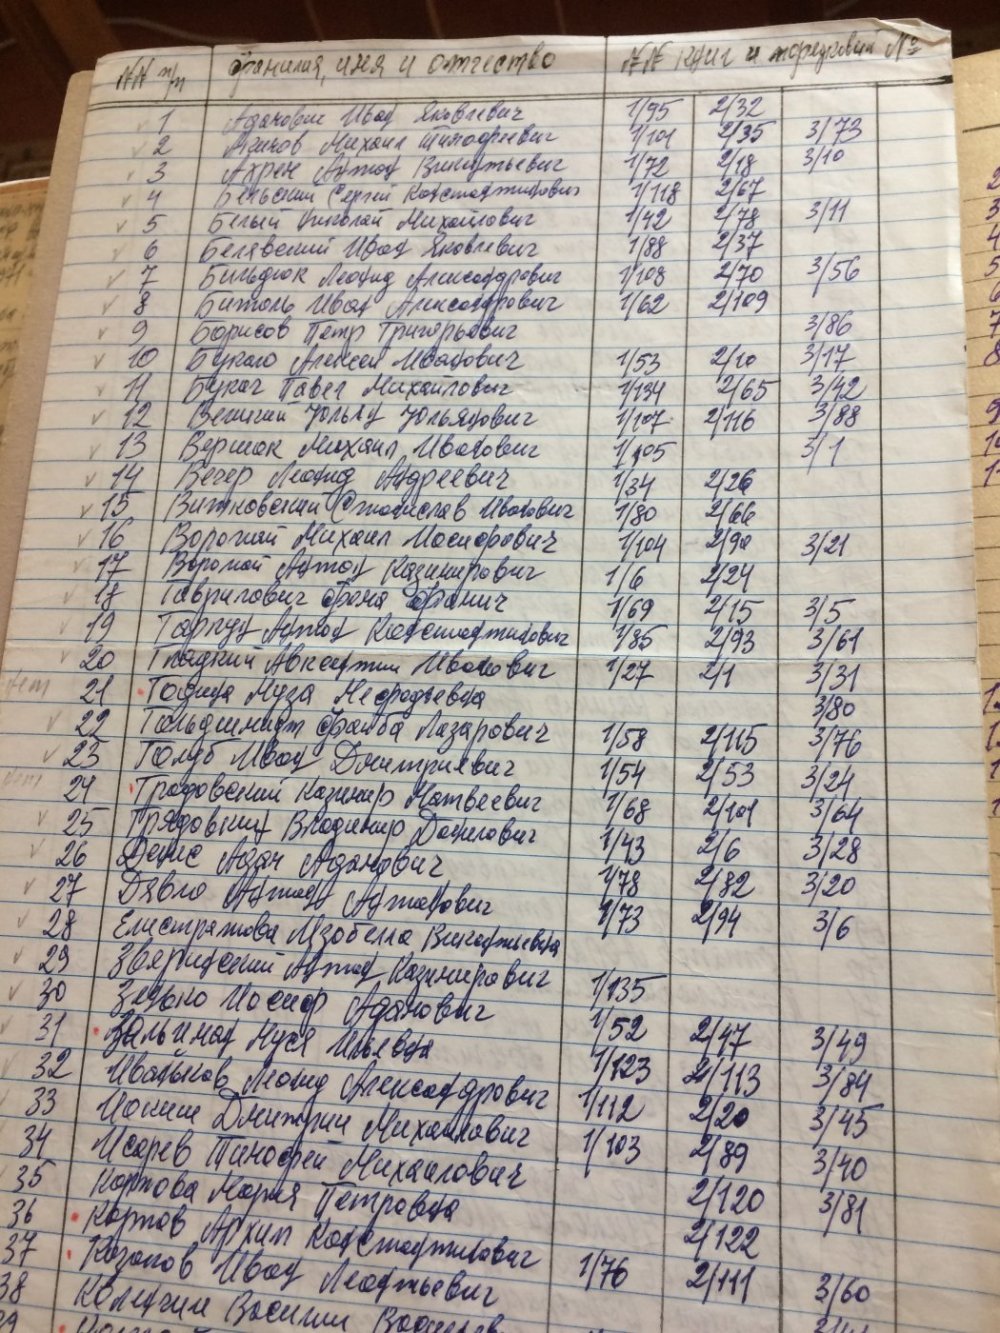 NN п/п Фамилия, имя и отчество NN книг и порядковый №
1 Адамович Иван Яковлевич 1/95 2/32
2 Михаил Тимофеевич 1/101 2/35 3/73
3 Антон Викентьевич 1/72 2/18 3/10
4 Бельский Сергей Константинович 1/118 2/67
5 Белый Николай Михайлович 1/42 2/78 3/11
6 Белявский Иван Яковлевич 1/88 2/37
7 Бильдюк Леонид Александрович 1/108 2/70 3/56
8 Битель Иван Александрович 1/62 2/109
9 Борисов Петр Григорьевич 3/86
10 Алексей Иванович 1/53 2/10 3/17
11 Букач Павел Михайлович 1/134 2/65 3/42
12 Ульян Ульянович 1/107 2/116 3/88
13 Михаил Иванович 1/105 3/1
14 Вечер Леонид Андреевич 1/34 2/26
15 Витковский Станислав Иванович 1/80 2/66
16 Михаил Иосифович 1/104 2/90 3/21
17 Вороной Антон Казимирович 1/6 2/24
18 Гаврилович Фома Фомич 1/69 2/15 3/5
19 Антон Константинович 1/85 2/93 3/61
20 Гладкий Авксентий Иванович 1/27 2/1 3/31
нет 21 Муза Нефодьевна 3/80
22 Гольдшмидт Файба Лазарович 1/58 2/115 3/76
23 Голуб Иван Дмитриевич 1/54 2/53 3/24
нет 24 Казимир Матвеевич 1/68 2/101 3/64
25 Владимир Данилович 1/43 2/6 3/28
26 Денис Адам Адамович 1/78 2/82 3/20
27 Антон Антонович 1/73 2/94 3/6
28 Елистратова Изобелла Викентьевна
29 Антон Казимирович 1/135
30 Зенько Иосиф Адамович 1/52 2/47 3/49
31 Нуся Ильевна 1/123 2/113 3/84
32 Иванов Леонид Александрович 1/112 2/20 3/45
33 Дмитрий Михайлович 1/103 2/89 3/40
34 Исарев Тимофей Михайлович 2/120 3/81
35 Карпова Мария Петровна 2/122
36 Карпов Архип Константинович 1/76 2/111 3/60
37 Казаков Иван Леонтьевич
38 Василий
39